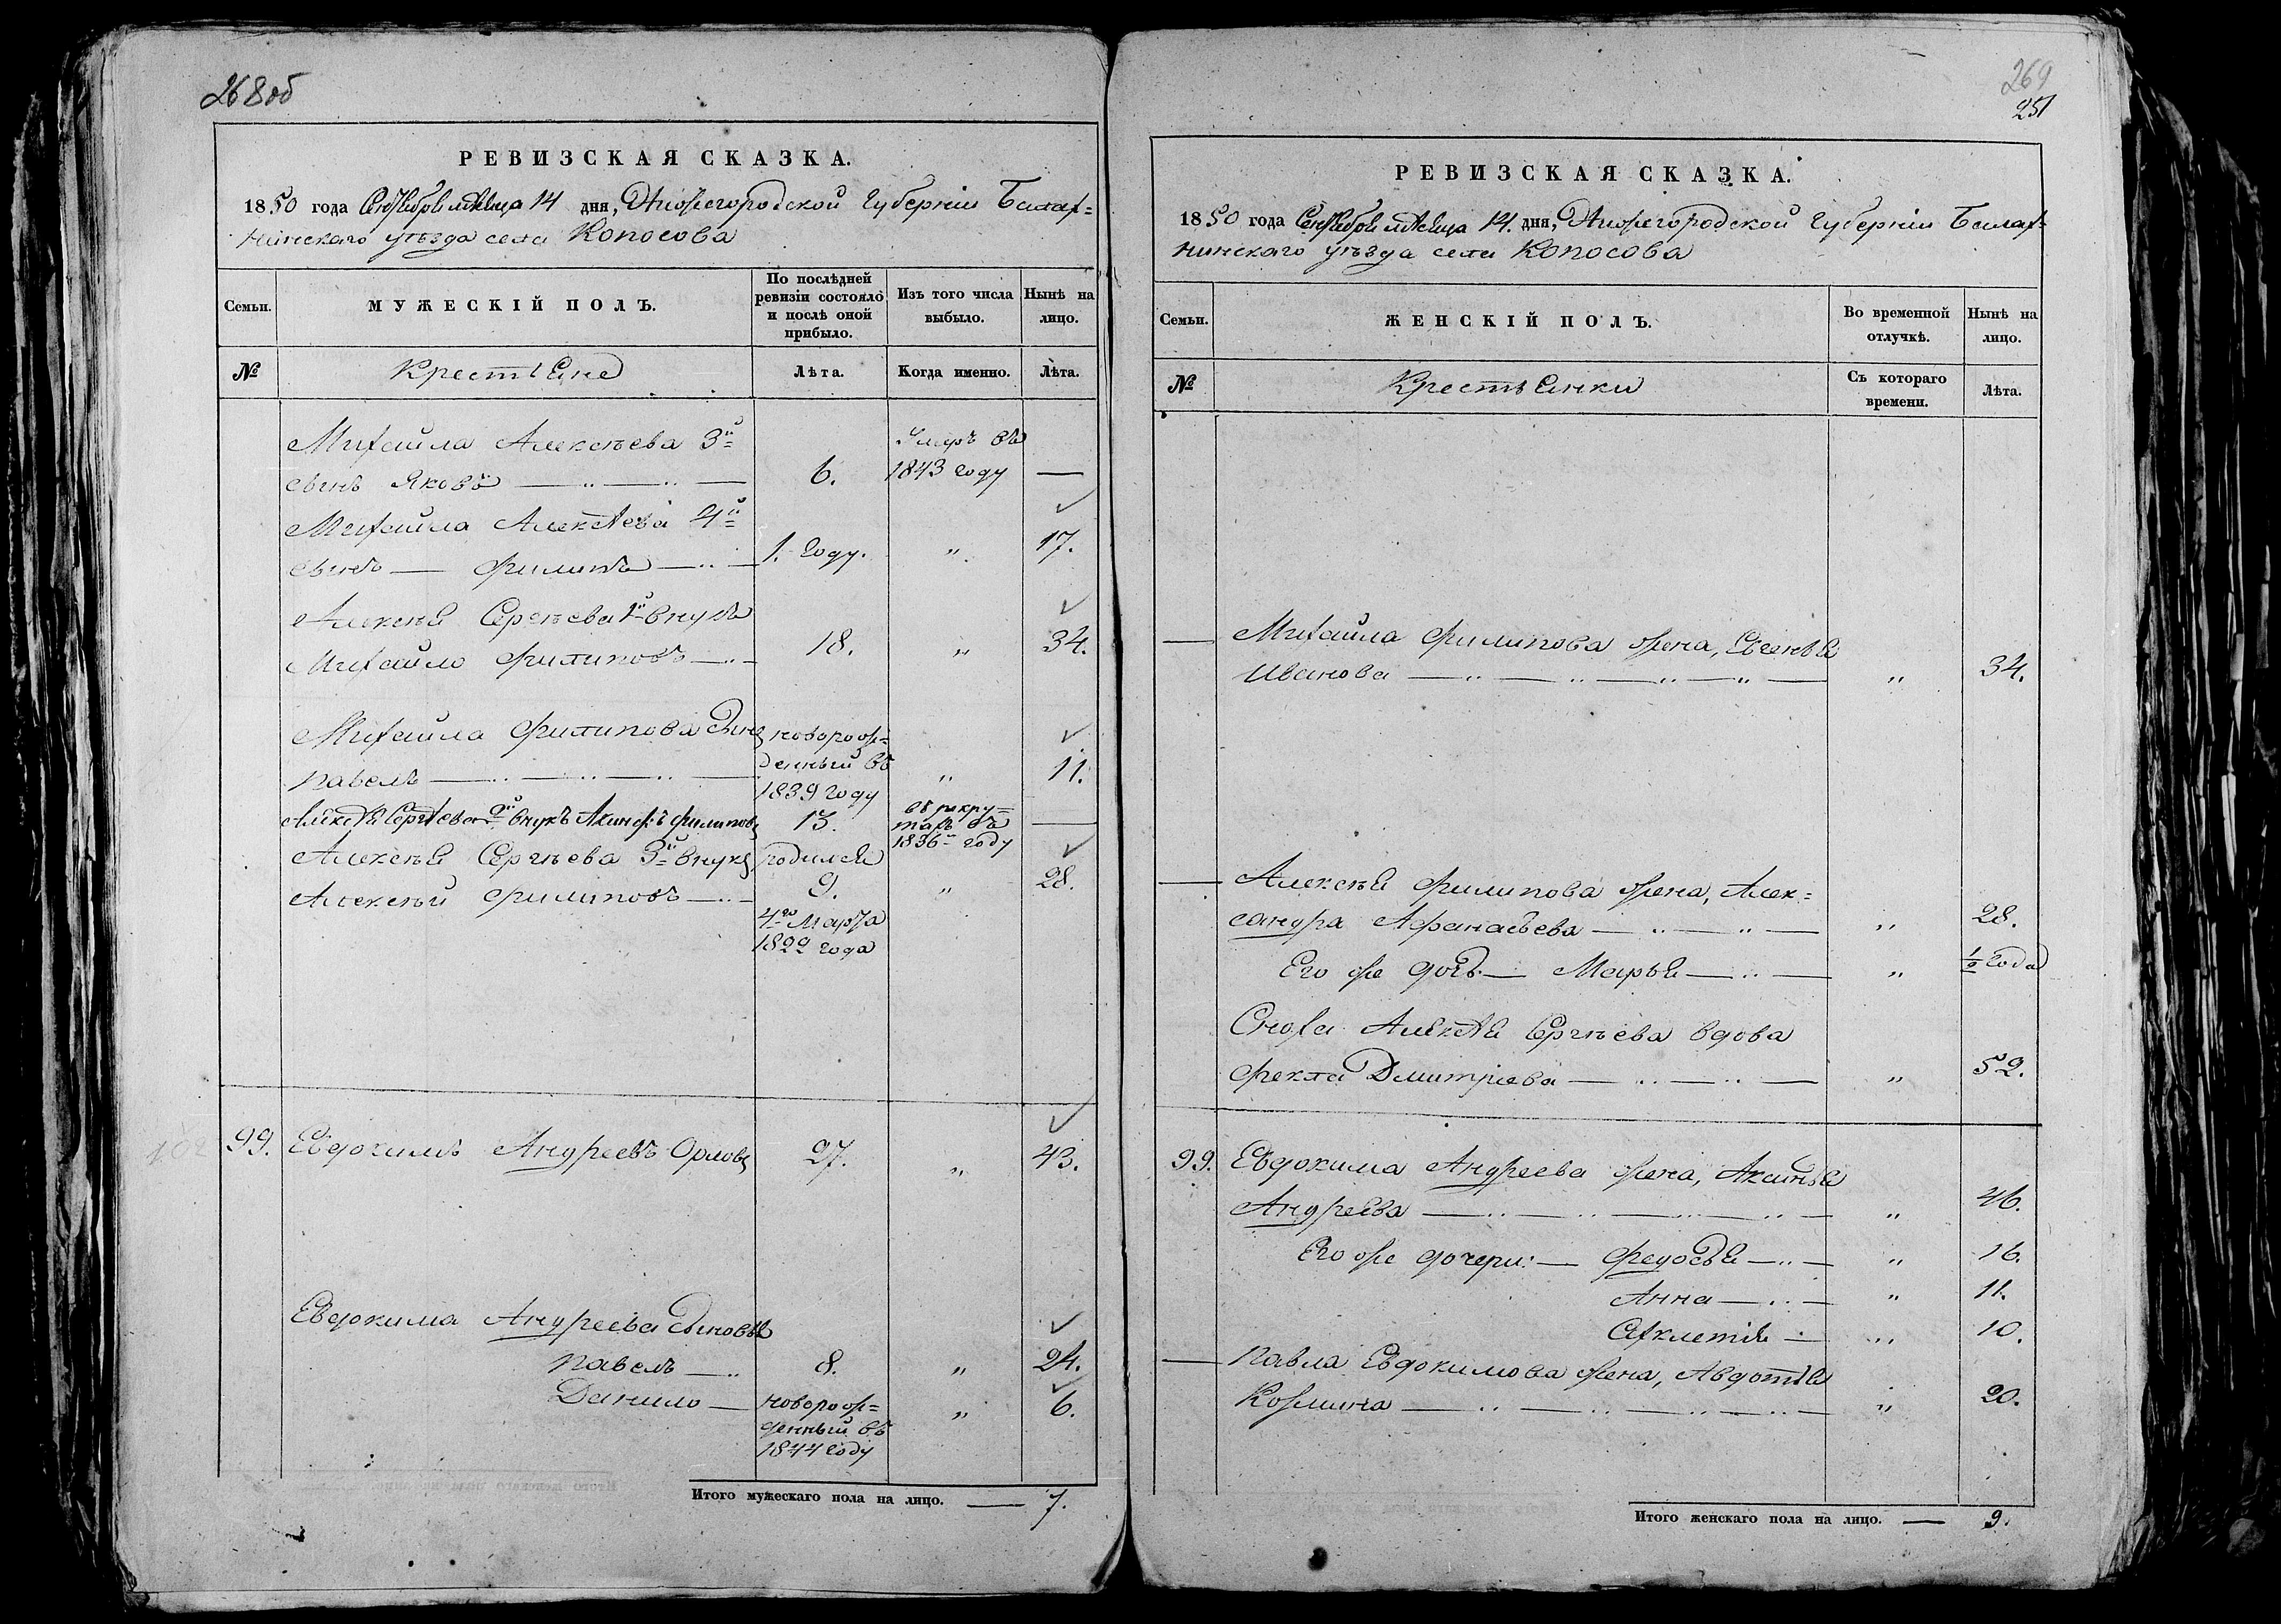 268об
РЕВИЗСКАЯ СКАЗКА.
1850 года Сентября мѣсяца 14 дня, Нижегородской Губерніи Балах=
нинскаго уѣзда села Копосова
Семьи.
МУЖЕСКІЙ ПОЛЪ.
По послѣдней ревизіи состояло и послѣ оной прибыло.
Изъ того числа выбыло.
Нынѣ на лицо.
№
Крестьяне
Лѣта.
Когда именно.
Лѣта.
Михайла Алексѣева 3й
сынъ Яковъ 6. Умеръ въ 1843 году —
Михайла Алексѣева 4й
сынъ — Филипъ 1. году. " 17.
Алексѣя Сергѣева 1й внукъ
Михайло Филиповъ 18. " 34.
Михайла Филипова сынъ
Павелъ новорожденный въ 1839 году " 11.
Алексѣя Сергѣева 2й внукъ Акинфъ Филиповъ 13. въ рекрутахъ съ 1836 году —
Алексѣя Сергѣева 3й внукъ
Алексѣй Филиповъ родился 9. " 28.
4го Марта
1822 года
102
99. Евдокимъ Андреевъ Орловъ 27. " 43.
Евдокима Андреева сыновья
Павелъ 8. " 24.
Данило — новорожденный въ 1844 году " 6.
Итого мужескаго пола на лицо. — 7.
269
251
РЕВИЗСКАЯ СКАЗКА.
1850 года Сентября мѣсяца 14. дня, Нижегородской Губерніи Балах=
нинскаго уѣзда села Копосова
Семьи.
ЖЕНСКІЙ ПОЛЪ.
Во временной отлучкѣ.
Нынѣ на лицо.
№
Крестьянки
Съ котораго времени.
Лѣта.
— Михайла Филипова жена, Евгенья
Иванова " 34.
— Алексѣя Филипова жена, Алек=
сандра Афанасьева " 28.
Его же дочь — Марья " 1/2 года
Сноха Алексѣя Сергѣева вдова
Фекла Дмитріева " 52.
99. Евдокима Андреева жена, Аксинья
Андреева " 46.
Его же дочери: — Федосья " 16.
Анна " 11.
10.
— Павла Евдокимова жена, Авдотья
Козмина " 20.
Итого женскаго пола на лицо. — 9.